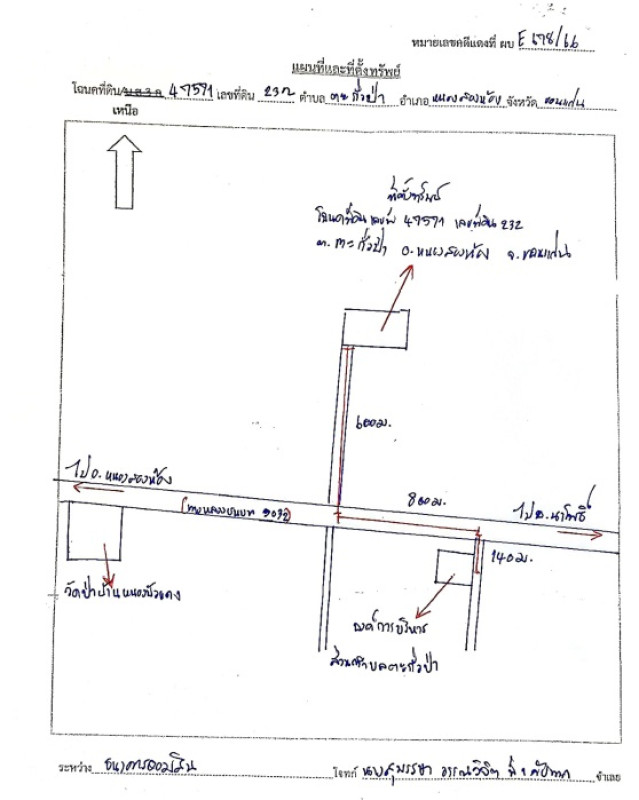 หมายเลขคดีแดงที่ ผบ E 678/66
แผนที่และที่ตั้งทรัพย์
โฉนดที่ดิน น.ส.3 ก 47571 เลขที่ดิน 232 ตำบล ตะกั่วป่า อำเภอ หนองสองห้อง จังหวัด ขอนแก่น
เหนือ
ที่ตั้งทรัพย์
โฉนดที่ดิน เลขที่ 47571 เลขที่ดิน 232
ต. ตะกั่วป่า อ. หนองสองห้อง จ. ขอนแก่น
600 ม.
ไป อ. หนองสองห้อง
800 ม.
(ทางหลวงชนบท
ไป อ. นาโพธิ์
140 ม.
วัดป่าบ้านหนองบัวแดง
องค์การบริหาร
ส่วนตำบลตะกั่วป่า
ระหว่าง ธนาคารออมสิน โจทก์ นางสุพรรษา จำเลย